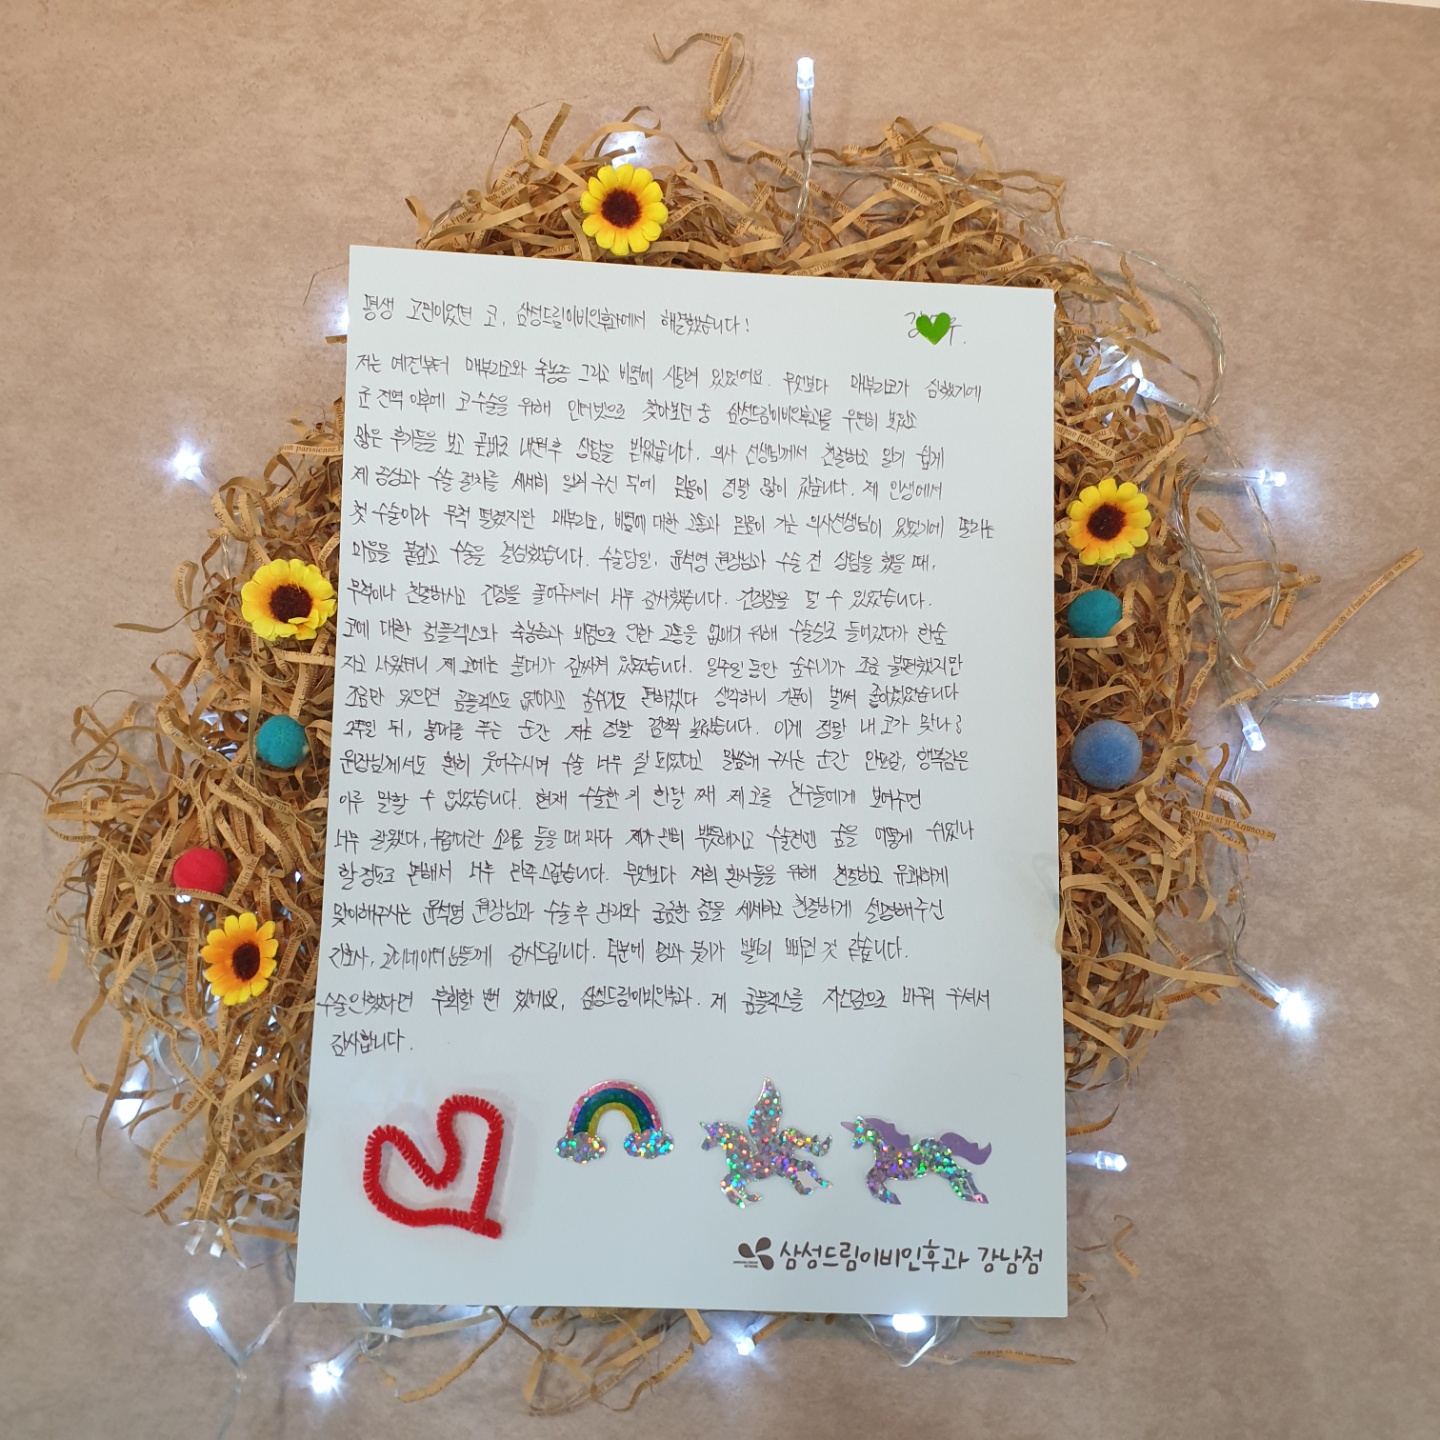 평생 고민이었던 코, 삼성드림이비인후과에서 해결했습니다!
저는 예전부터 매부리코와 축농증 그리고 비염에 시달려 있었어요. 무엇보다 매부리코가 심했기에
군 전역 이후에 코수술을 위해 인터넷으로 찾아보던 중 삼성드림이비인후과를 우연히 보았고
많은 후기들을 보고 곧바로 내원후 상담을 받았습니다. 의사 선생님께서 친절하고 알기 쉽게
제 증상과 수술 절차를 세세히 알려 주신 덕에 믿음이 정말 많이 갔습니다. 제 인생에서
첫 수술이라 무척 떨렸지만 매부리코, 비염에 대한 고통과 믿음이 가는 의사선생님이 있었기에 떨리는
마음을 붙잡고 수술을 결심했습니다. 수술당일, 윤석영 원장님과 수술 전 상담을 했을 때,
무척이나 친절하시고 긴장을 풀어주셔서 너무 감사했습니다. 긴장감을 덜 수 있었습니다.
코에 대한 컴플렉스와 축농증과 비염으로 인한 고통을 없애기 위해 수술실로 들어갔다가 한숨
자고 나왔더니 제 코에는 붕대가 감싸져 있었습니다. 일주일 동안 숨쉬기가 조금 불편했지만
조금만 있으면 콤플렉스도 없어지고 숨쉬기도 편하겠다 생각하니 기분이 벌써 좋아졌었습니다
2주일 뒤, 붕대를 푸는 순간 저는 정말 깜짝 놀랐습니다. 이게 정말 내 코가 맞나?
원장님께서도 환히 웃어주시며 수술 너무 잘 되었다고 말씀해 주시는 순간 안도감, 행복감은
이루 말할 수 없었습니다. 현재 수술한 지 한달 째 제 코를 친구들에게 보여주면
너무 잘됐다, 부럽다란 소리를 들을 때 마다 제가 괜히 뿌듯해지고 수술전엔 숨을 어떻게 쉬었나
할 정도로 편해서 너무 만족스럽습니다. 무엇보다 저희 환자들을 위해 친절하고 유쾌하게
맞이해주시는 윤석영 원장님과 수술 후 관리와 궁금한 점을 세세하고 친절하게 설명해주신
간호사, 코디네이터님들께 감사드립니다. 덕분에 멍과 붓기가 빨리 빠진 것 같습니다.
수술안했다면 후회할 뻔 했네요, 삼성드림이비인후과. 제 콤플렉스를 자신감으로 바꿔 주셔서
감사합니다.
삼성드림이비인후과 강남점